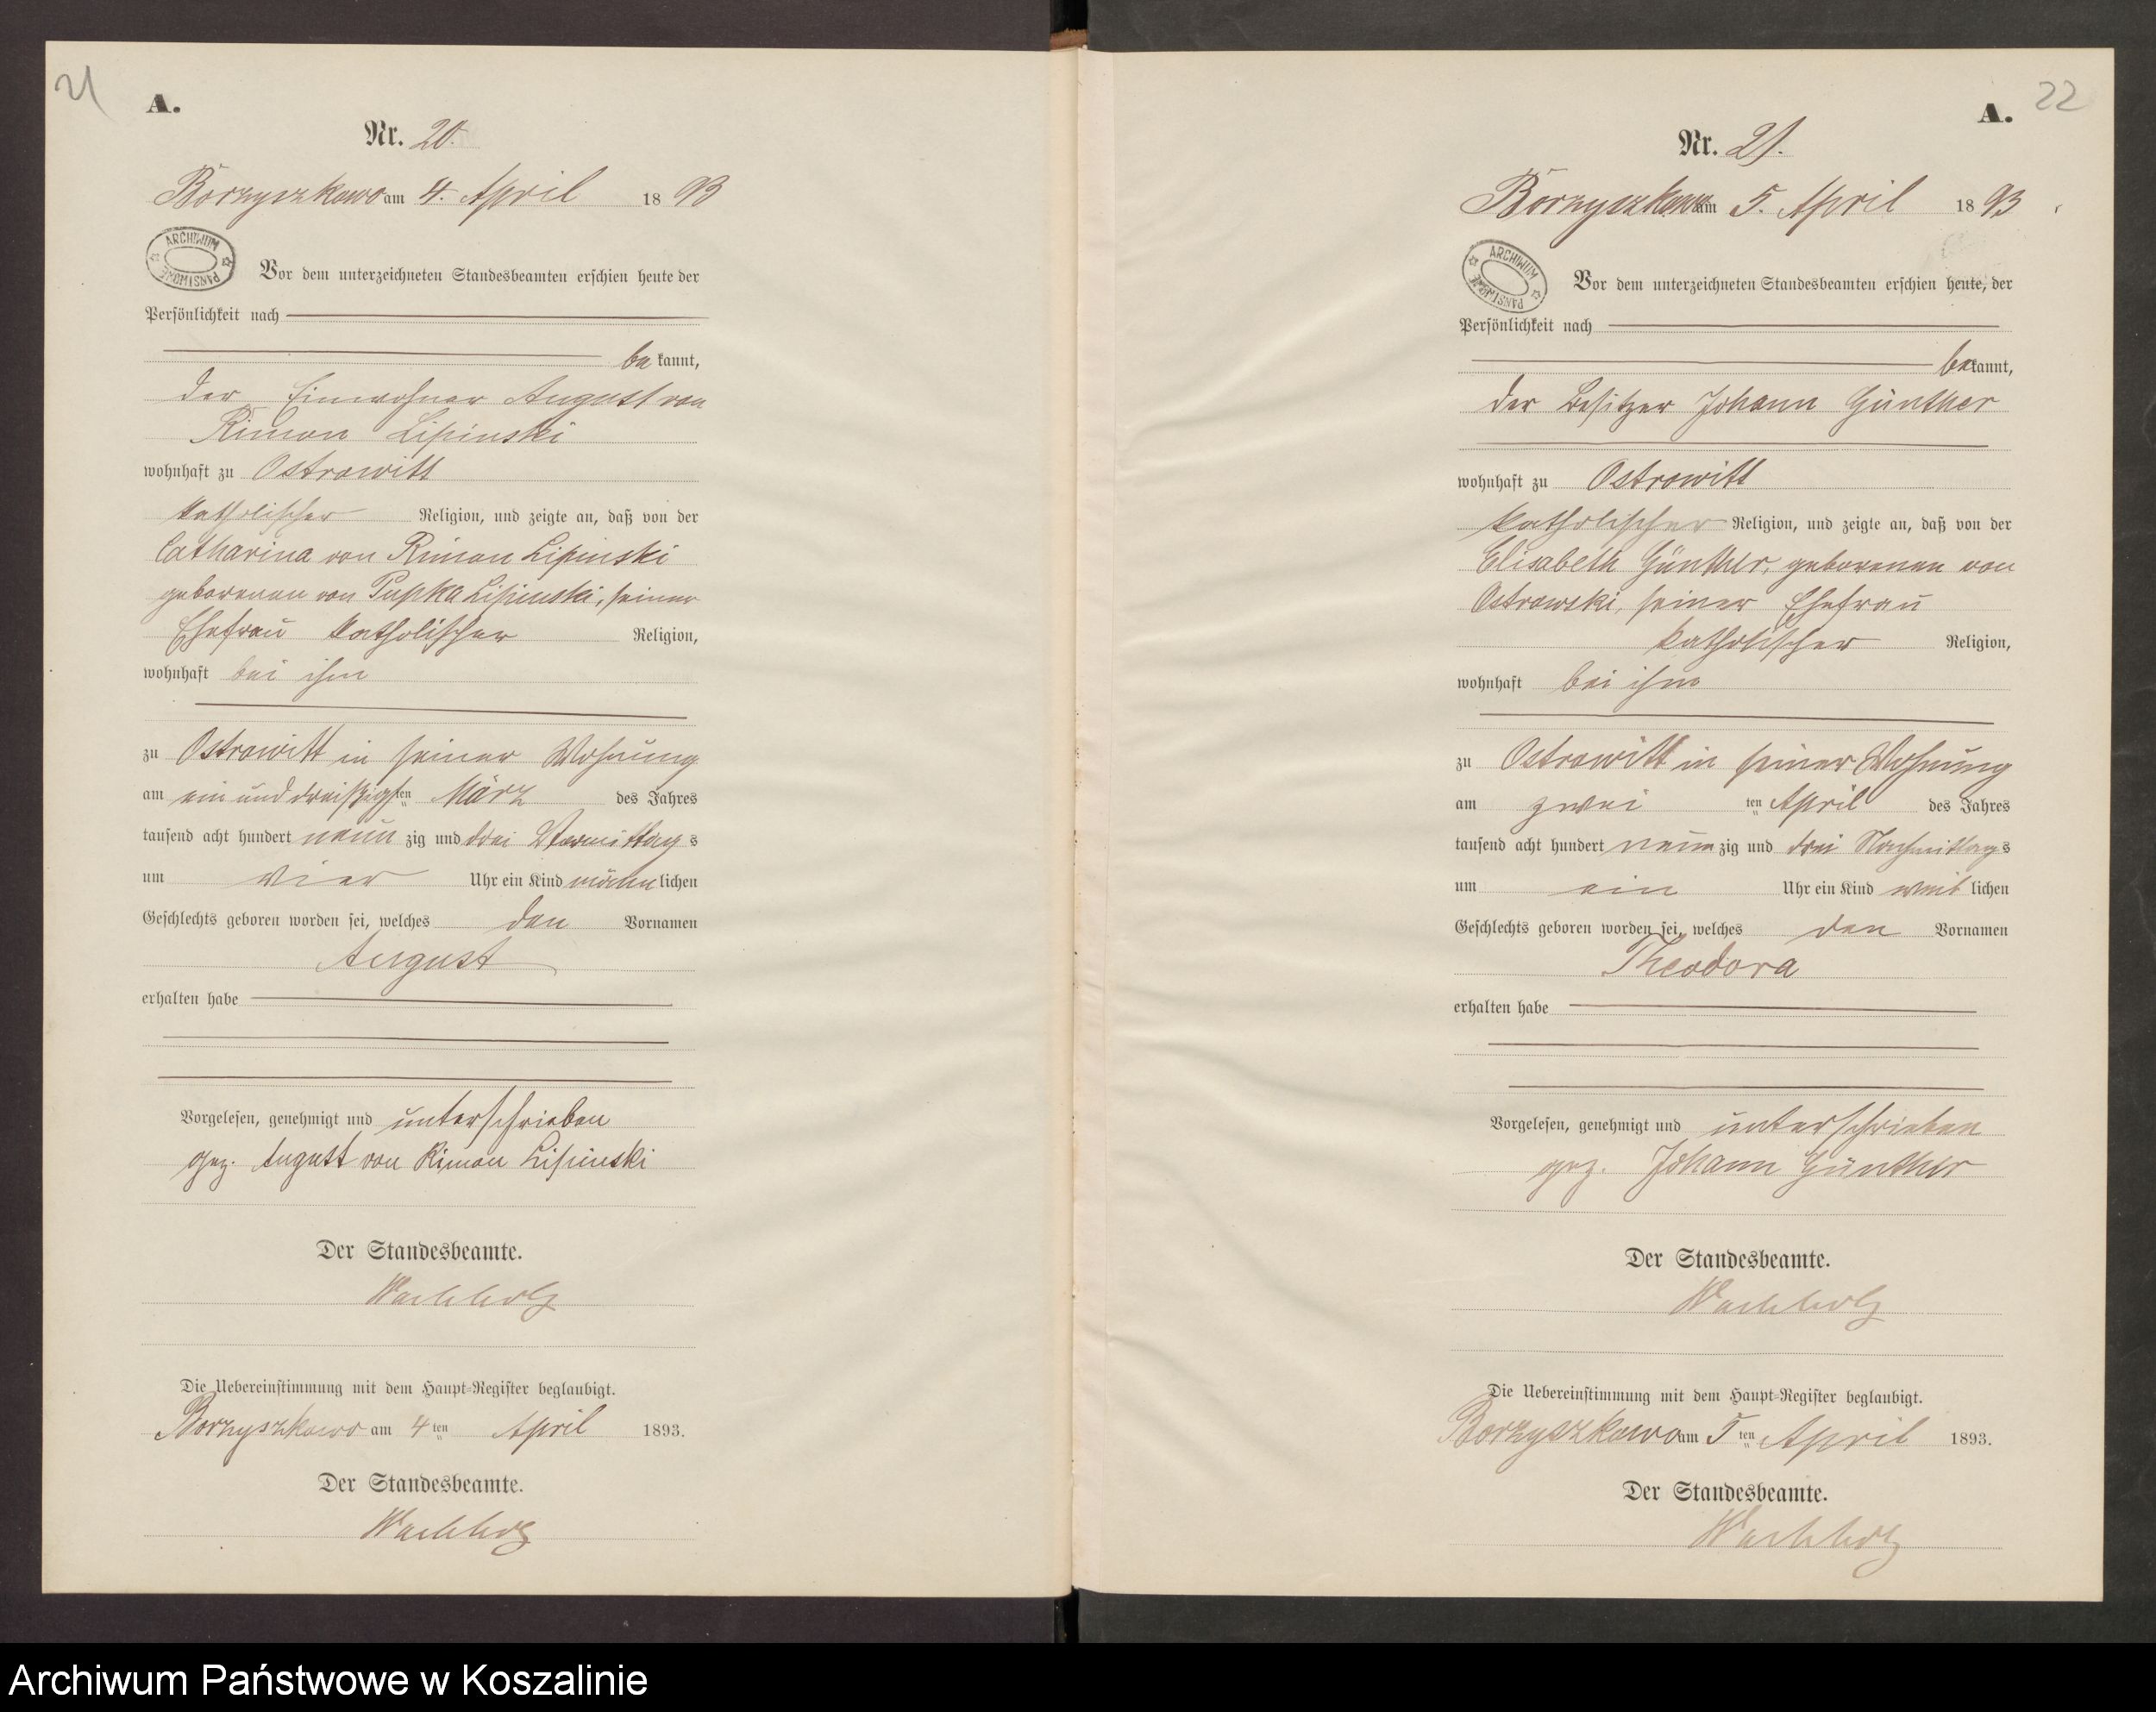 21
A.
Nr. 20.
Borzyszkowo am 4. April 1893
ARCHIWUM PAŃSTWOWE
Vor dem unterzeichneten Standesbeamten erschien heute der
Persönlichkeit nach
bekannt,
der Einwohner August von
Rimon Lipinski
wohnhaft zu Ostrowitt
katholischer Religion, und zeigte an, daß von der
Catharina von Rimon Lipinski
geborenen von Pupka Lipinski, seiner
Ehefrau katholischer Religion,
wohnhaft bei ihm
zu Ostrowitt in seiner Wohnung
am ein und dreißigsten März des Jahres
tausend acht hundert neunzig und drei Vormittags
um vier Uhr ein Kind männlichen
Geschlechts geboren worden sei, welches den Vornamen
August
erhalten habe
Vorgelesen, genehmigt und unterschrieben
gez. August von Rimon Lipinski
Der Standesbeamte.
Wachholz
Die Uebereinstimmung mit dem Haupt-Register beglaubigt.
Borzyszkowo am 4ten April 1893.
Der Standesbeamte.
Wachholz
22
A.
Nr. 21.
Borzyszkowo am 5. April 1893
ARCHIWUM PAŃSTWOWE
Vor dem unterzeichneten Standesbeamten erschien heute, der
Persönlichkeit nach
bekannt,
der Besitzer Johann Günther
wohnhaft zu Ostrowitt
katholischer Religion, und zeigte an, daß von der
Elisabeth Günther, geborenen von
Ostrowski, seiner Ehefrau
katholischer Religion,
wohnhaft bei ihm
zu Ostrowitt in seiner Wohnung
am zweiten April des Jahres
tausend acht hundert neunzig und drei Nachmittags
um ein Uhr ein Kind weiblichen
Geschlechts geboren worden sei, welches den Vornamen
Theodora
erhalten habe
Vorgelesen, genehmigt und unterschrieben
gez. Johann Günther
Der Standesbeamte.
Wachholz
Die Uebereinstimmung mit dem Haupt-Register beglaubigt.
Borzyszkowo am 5ten April 1893.
Der Standesbeamte.
Wachholz
Archiwum Państwowe w Koszalinie